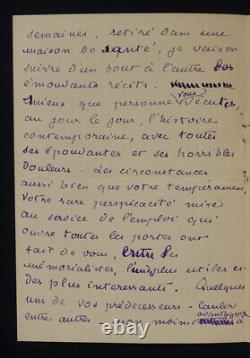 semaines, retiré dans une
maison de santé, je vais en
suivre d'un bout à l'autre vos
émouvants récits.
Mieux que personne vous vécûtes
au jour le jour, l'histoire
contemporaine, avec toutes
ses épouvantes et ses horribles
douleurs. Les circonstances
aussi bien que votre tempérament,
votre rare perspicacité mise
au service de l'emploi qui
ouvre toutes les portes ont
fait de vous, entre les
mémorialistes, l'un des plus utiles et
des plus intéressants. Quelques
uns de vos prédécesseurs - Canler
entre autres non moins avantageux
à
© WorthPoint